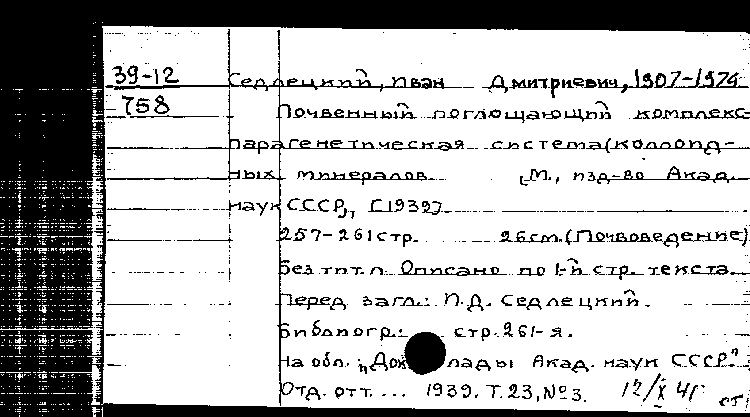 39-12 Седлецкий, Иван Дмитриевич, 1907-1974
758 Почвенный поглощающий комплекс
парагенетическая система (коллоид-
ных минералов. [М., изд-во Акад.
наук СССР], [1939].
257-261 стр. 26 см. (Почвоведение)
Без тит. л. Описано по 1-й стр. текста.
Перед загл.: И.Д. Седлецкий.
Библиогр.: стр. 261-я.
На обл.: "Доклады Акад. наук СССР".
Отд. отт. ... 1939. Т. 23, № 3. 12/X 41